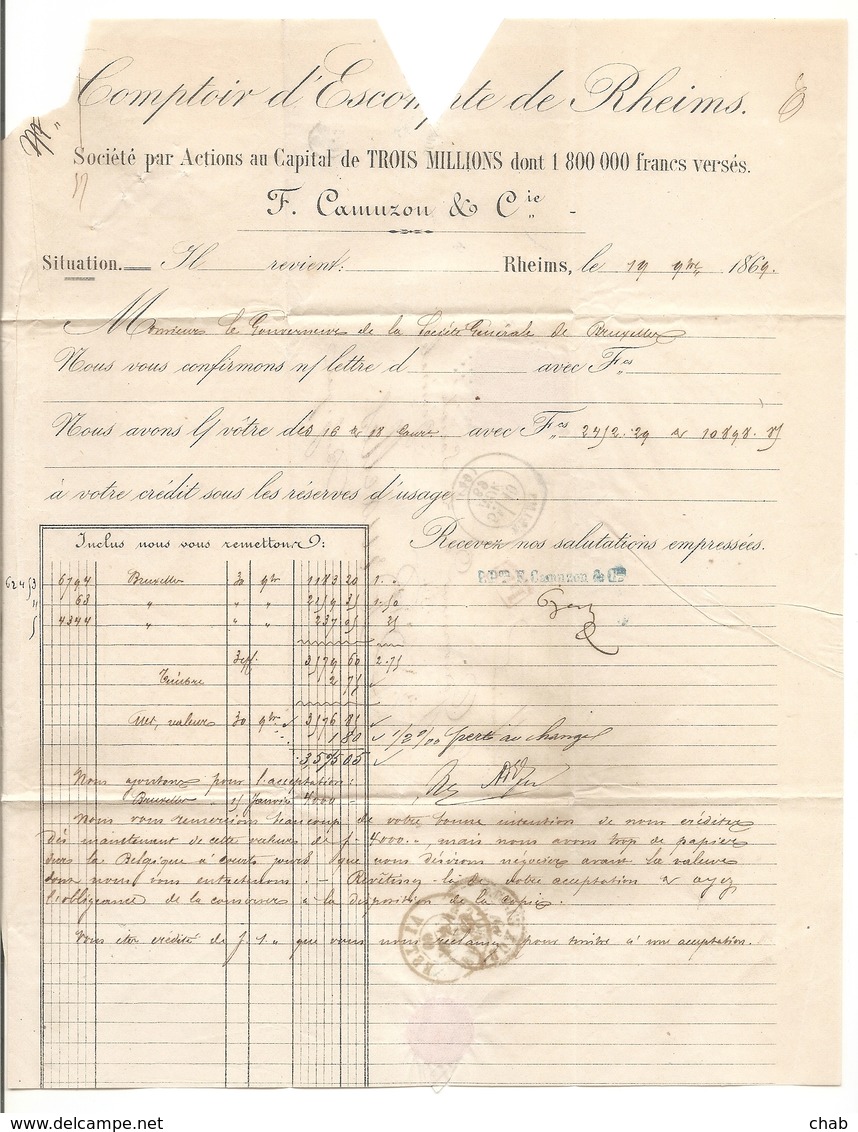 Comptoir d'Escompte de Rheims.
Société par Actions au Capital de TROIS MILLIONS dont 1 800 000 francs versés.
F. Camuzon & Cie
Situation. Il revient: Rheims, le 19 9bre 1869.
Monsieur le Gouverneur de la Société Générale de Bruxelles
Nous vous confirmons n/ lettre d avec Fcs
Nous avons l/ vôtre des 16 & 18 Cour. avec Fcs 2452.29 & 10898.85
à votre crédit sous les réserves d'usage
Inclus nous vous remettons: Recevez nos salutations empressées.
6794 Bruxelles 30 9bre 1183 20
P.Pon F. Camuzon & Cie
63 " " " 2159 35 1.50
4344 " " " 237 05 25
3 eff. 3579 60 2.75
Timbre 2 75
Net, valeur 30 9bre 3576 85
1 80 1/2 0/00 perte au change
3,575 05
Nous ajoutons pour l'acceptation:
Bruxelles 15 Janvier 4000
Nous vous remercions beaucoup de votre bonne intention de nous créditer
dès maintenant de cette valeur de f. 4000.., mais nous avons trop de papier
sur la Belgique à courts jours que nous désirons négocier avant la valeur
dont nous vous entretenons. - Revêtissez-la de votre acceptation & ayez
l'obligeance de la conserver à la disposition de la copie.
Vous êtes crédité de f. 1." que vous nous réclamez pour timbre à une acceptation.
chab